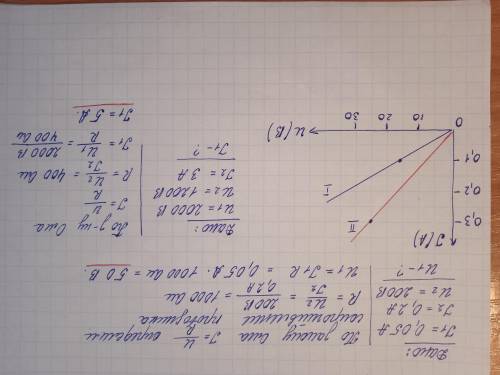 Дано:
J1 = 0,05 А
J2 = 0,2 А
U2 = 200В
U1 - ?
По закону Ома J = U/R определим
сопротивление проводника
R = U2/J2 = 200В/0,2А = 1000 Ом
U1 = J1 R = 0,05А · 1000 Ом = 50 В.
J(А)
0,3
0,2
0,1
0
10
20
30
U(В)
I
II
Дано:
U1 = 2000В
U2 = 1200В
J2 = 3 А
J1 - ?
По з-ну Ома
J = U/R
R = U2/J2 = 400 Ом
J1 = U1/R = 2000 В/400 Ом
J1 = 5 А.